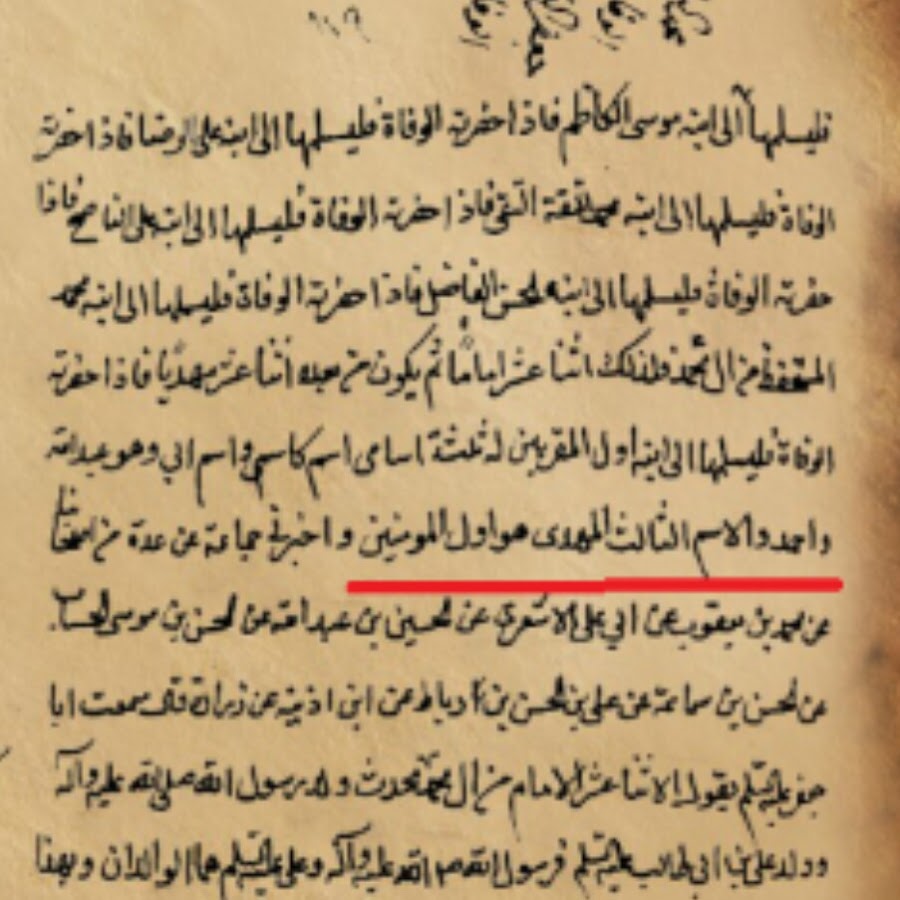 فليسلمها الى ابنه موسى الكاظم فاذا حضرته الوفاة فليسلمها الى ابنه على الرضا فاذا حضرته
الوفاة فليسلمها الى ابنه محمد الثقة التقى فاذا حضرته الوفاة فليسلمها الى ابنه على الناصح فاذا
حضرته الوفاة فليسلمها الى ابنه الحسن الفاضل فاذا حضرته الوفاة فليسلمها الى ابنه محمد
المستحفظ من ال محمد فذلك اثنا عشر اماما ثم يكون من بعده اثنا عشر مهديا فاذا حضرته
الوفاة فليسلمها الى ابنه اول المقربين له ثلثة اسامى اسم كاسمى واسم ابي وهو عبد الله
واحمد والاسم الثالث المهدى هو اول المومنين واخبرني جماعة عن عدة من اصحابنا
عن محمد بن يعقوب عن ابي على الاشعري عن الحسين بن عبد الله عن الحسن بن موسى الخشاب
عن الحسن بن سماعة عن على بن الحسن بن رباط عن ابن اذينه عن زرارة قال سمعت ابا
جعفر عليه السلم يقول الاثنا عشر الامام من ال محمد محدث ولد رسول الله صلى الله عليه وآله
وولد على بن ابى طالب عليه السلم فرسول الله صلى الله عليه وآله وعلى عليه السلم هما الوالدان وبهذا